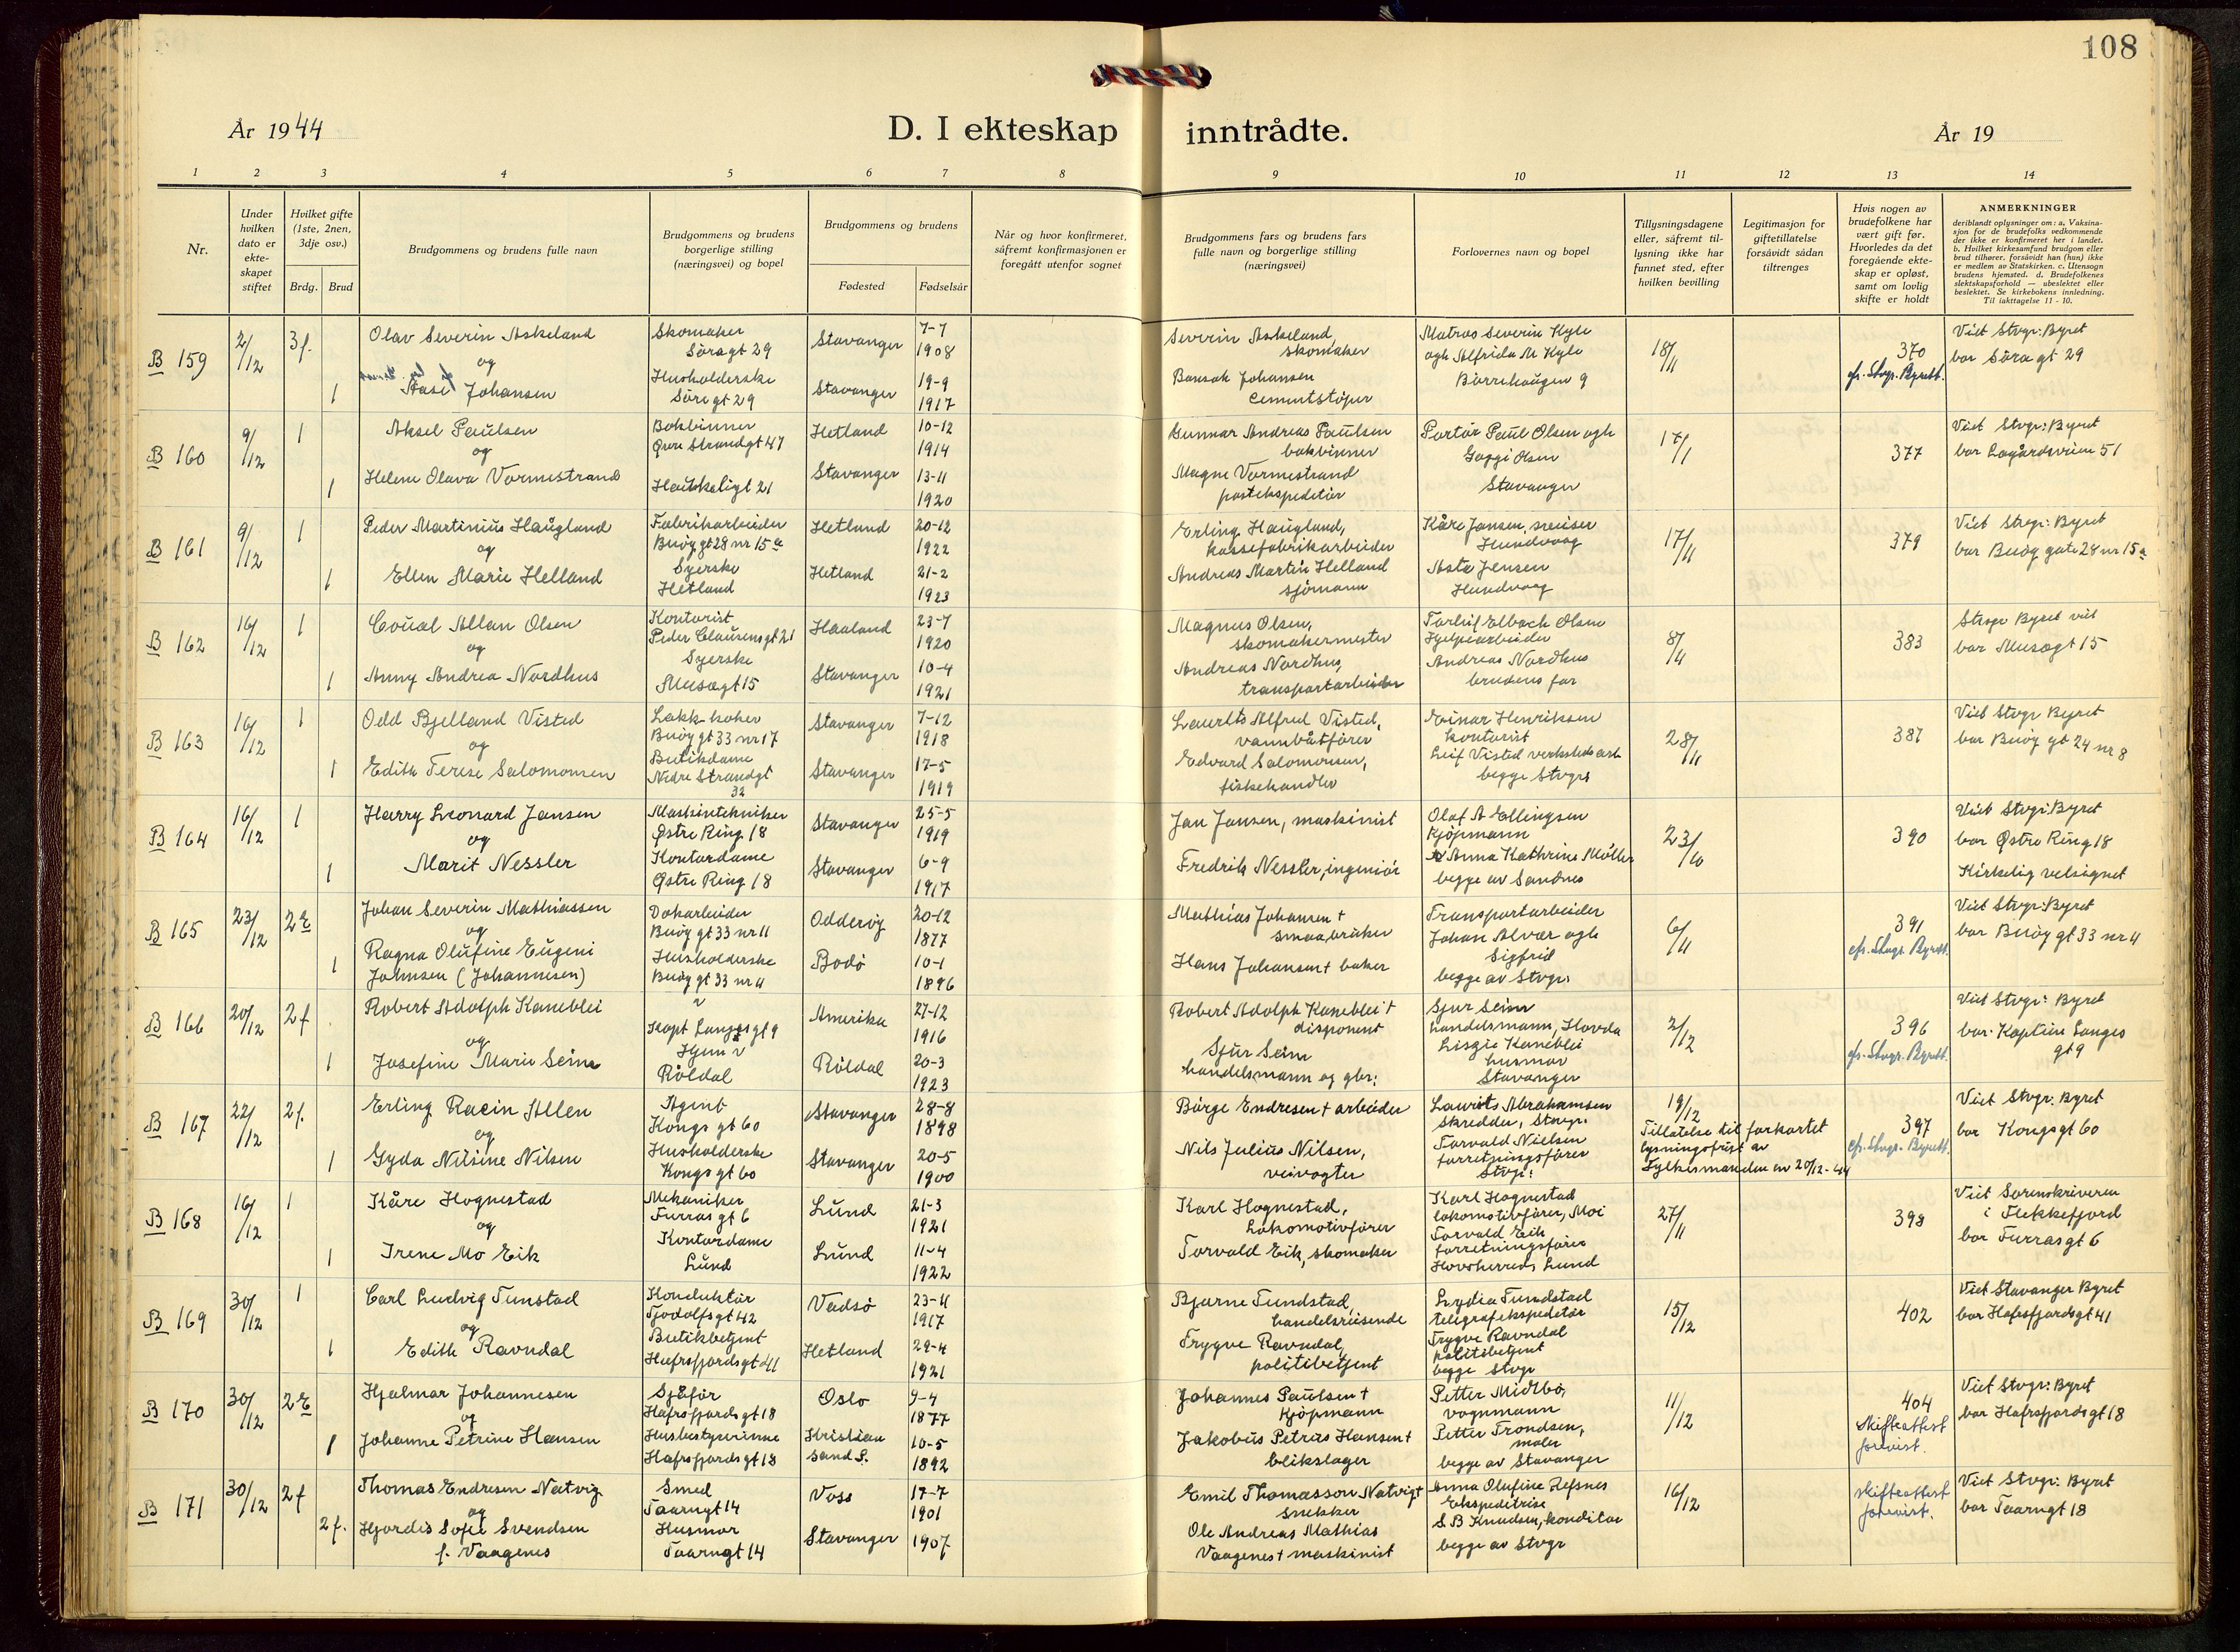 108
År 1944
D. I ekteskap inntrådte.
År 19
1 2 3 4 5 6 7 8 9 10 11 12 13 14
Nr.
Under hvilken dato er ekteskapet stiftet
Hvilket gifte (1ste, 2nen, 3dje osv.)
Brdg. Brud
Brudgommens og brudens fulle navn
Brudgommens og brudens borgerlige stilling (næringsvei) og bopel
Brudgommens og brudens
Fødested Fødselsår
Når og hvor konfirmeret, såfremt konfirmasjonen er foregått utenfor sognet
Brudgommens fars og brudens fars fulle navn og borgerlige stilling (næringsvei)
Forlovernes navn og bopel
Tillysningsdagene eller, såfremt tillysning ikke har funnet sted, efter hvilken bevilling
Legitimasjon for giftetillatelse forsåvidt sådan tiltrenges
Hvis nogen av brudefolkene har vært gift før. Hvorledes da det foregående ekteskap er opløst, samt om lovlig skifte er holdt
ANMERKNINGER
deriblandt oplysninger om: a. Vaksinasjon for de brudefolks vedkommende der ikke er konfirmeret her i landet. b. Hvilket kirkesamfund brudgom eller brud tilhører, forsåvidt han (hun) ikke er medlem av Statskirken. c. Utensogn brudens hjemsted. d. Brudefolkenes slektskapsforhold — ubeslektet eller beslektet. Se kirkebokens innledning. Til iakttagelse 11 - 10.
B 159 2/12 3f. Olav Severin Askeland Skomaker Søragt 29 Stavanger 7-7 1908
og
1 Aase Johansen Husholderske Søragt 29 Stavanger 19-9 1917
Severin Askeland, skomaker
Johansen cementstøper
Matros Severin Kyle
ogh Alfrida M Kyle
Bjørnehaugen 9
18/11
370
cfr. Stvgr. Byrett.
Viet Stvgr: Byret
bor Søra gt 29
B 160 9/12 1 Aksel Paulsen Bokbinner Øvre Strandgt 47 Hetland 10-12 1914
og
1 Helene Olava Vormestrand Haukeligt 21 Stavanger 13-11 1920
Gunnar Andreas Paulsen bokbinner
Magne Vormestrand postekspeditør
Portør Paul Olsen ogh
Olsen
Stavanger
17/1
377
Viet Stvgr: Byret
bor Lagårdsveien 51
B 161 9/12 1 Peder Martinius Haugland Fabrikarbeider Buøy gt 28 nr 15a Hetland 20-12 1922
og
1 Ellen Marie Helland Syerske Hetland Hetland 21-2 1923
Erling Haugland, kassefabrikarbeider
Andreas Martin Helland sjømann
Kåre Jansen, reiser
Hundvaag
Asta Jensen
Hundvaag
17/11
379
Viet Stvgr: Byret
bor Buøy gate 28 nr 15a
B 162 16/12 1 Allan Olsen Kontorist Peder Clausensgt 21 Haaland 23-7 1920
og
1 Anny Andrea Nordhus Syerske Musegt 15 Stavanger 10-4 1921
Magnus Olsen, skomakermester
Andreas Nordhus, transportarbeider
Torleif Elbach Olsen
Hjelpearbeider
Andreas Nordhus
brudens far
8/4
383
Stvgr Byret viet
bor Musegt 15
B 163 16/12 1 Odd Bjelland Visted Lakk-koker Buøy gt 33 nr 17 Stavanger 7-12 1918
og
1 Edith Terese Salomonsen Butikdame Nedre Strandgt 32 Stavanger 17-5 1919
Laurits Alfred Visted, vannbåtfører
Edvard Salomonsen, fiskehandler
Einar Henriksen
kontorist
Leif Visted verkstedsarb
begge Stvgr
28/11
387
Viet Stvgr Byret
bor Buøy gt 24 nr 8
B 164 16/12 1 Harry Leonard Jansen Maskintekniker Østre Ring 18 Stavanger 25-5 1919
og
1 Marit Nessler Kontordame Østre Ring 18 Stavanger 6-9 1917
Jan Jansen, maskinist
Fredrik Nessler, ingeniør
Olaf A Ellingsen
kjøpmann
Anna Kathrine Møller
begge av Sandnes
23/10
390
Viet Stvgr: Byret
bor Østre Ring 18
Kirkelig velsignet
B 165 23/12 2E Johan Severin Mathiassen Dokarbeider Buøy gt 33 nr 11 Odderøy 20-12 1877
og
1 Ragna Olufine Eugeni Johnsen (Johannesen) Husholderske Buøy gt 33 nr 11 Bodø 10-1 1896
Mathias Johansen + smaabruker
Hans Johansen + baker
Transportarbeider
Johan Alvær ogh
Sigfrid
begge av Stvgr:
6/11
391
cfr. Stvgr. Byrett.
Viet Stvgr: Byret
bor Buøy gt 33 nr 11
B 166 20/12 2f Robert Adolph Kaneblei Kapt Langesgt 9 Amerika 27-12 1916
og
1 Josefine Marie Seim Hjemv Røldal Røldal 20-3 1923
Robert Adolph Kaneblei + disponent
Sjur Seim handelsmann og gbr:
Sjur Seim
handelsmann, Hovda
Kaneblei
husmor
Stavanger
2/12
396
cfr. Stvgr. Byrett.
Viet Stvgr: Byret
bor: Kaptein Langes gt 9
B 167 22/12 2f. Erling Racin Allen Agent Kongsgt 60 Stavanger 28-8 1898
og
1 Gyda Nilsine Nilsen Husholderske Kongsgt 60 Stavanger 20-5 1900
Børge Endresen + arbeider
Nils Julius Nilsen, veivogter
Laurits Abrahamsen
skredder, Stvgr.
Torvald Nielsen
forretningsfører
Stvgr:
19/12
Tillatelse til forkortet lysningsfrist av Fylkesmannden av 20/12-44
397
cfr. Stvgr. Byrett.
Viet Stvgr. Byret
bor Kongsgt 60
B 168 16/12 1 Kåre Hognestad Mekaniker Furrasgt 6 Lund 21-3 1921
og
1 Irene Mo Eik Kontordame Lund Lund 11-4 1922
Karl Hognestad, Lokomotivfører
Torvald Eik, skomaker
Karl Hognestad
lokomotivfører, Moi
Torvald Eik
forretningsfører
Hovsherred, Lund
27/11
398
Viet Sorenskriveren
i Flekkefjord
bor Furrasgt 6
B 169 30/12 1 Carl Ludvig Tunstad Konduktør Tjodolfsgt 42 Vadsø 23-11 1917
og
1 Edith Ravndal Butikbetjent Hafrsfjordsgt 41 Hetland 29-4 1921
Bjarne Tundstad, handelsreisende
Trygve Ravndal, politibetjent
Lydia Tundstad
telegrafekspeditør
Trygve Ravndal
politibetjent
begge Stvgr
15/12
402
Viet Stavanger Byret
bor Hafrsfjordsgt 41
B 170 30/12 2E Hjalmar Johannesen Sjåfør Hafrsfjordsgt 18 Oslo 9-4 1877
og
1 Johanne Petrine Hansen Husbestyrerinne Hafrsfjordsgt 18 Kristiansand S. 10-5 1892
Johannes Paulsen + kjøpmann
Jakobus Petrus Hansen + blikslager
Petter Midtbø,
vognmann
Petter Trondsen,
maler
begge av Stavanger
11/12
404
Skifteattest
forevist.
Viet Stvgr: Byret
bor Hafrsfjordsgt 18
B 171 30/12 2f Thomas Endresen Natvig Smed Taarngt 14 Voss 17-7 1901
og
2f. Hjørdis Sofie Svendsen f. Vaagenes Husmor Taarngt 14 Stavanger 1907
Emil Thomasson Natvig + snekker
Ole Andreas Mathias Vaagenes + maskinist
Anna Olufine Refsnes
Ekspeditrise
S B Knudsen, konditor
begge av Stvgr
16/12
skifteattest
forevist.
Viet Stvgr: Byret
bor Taarngt 18